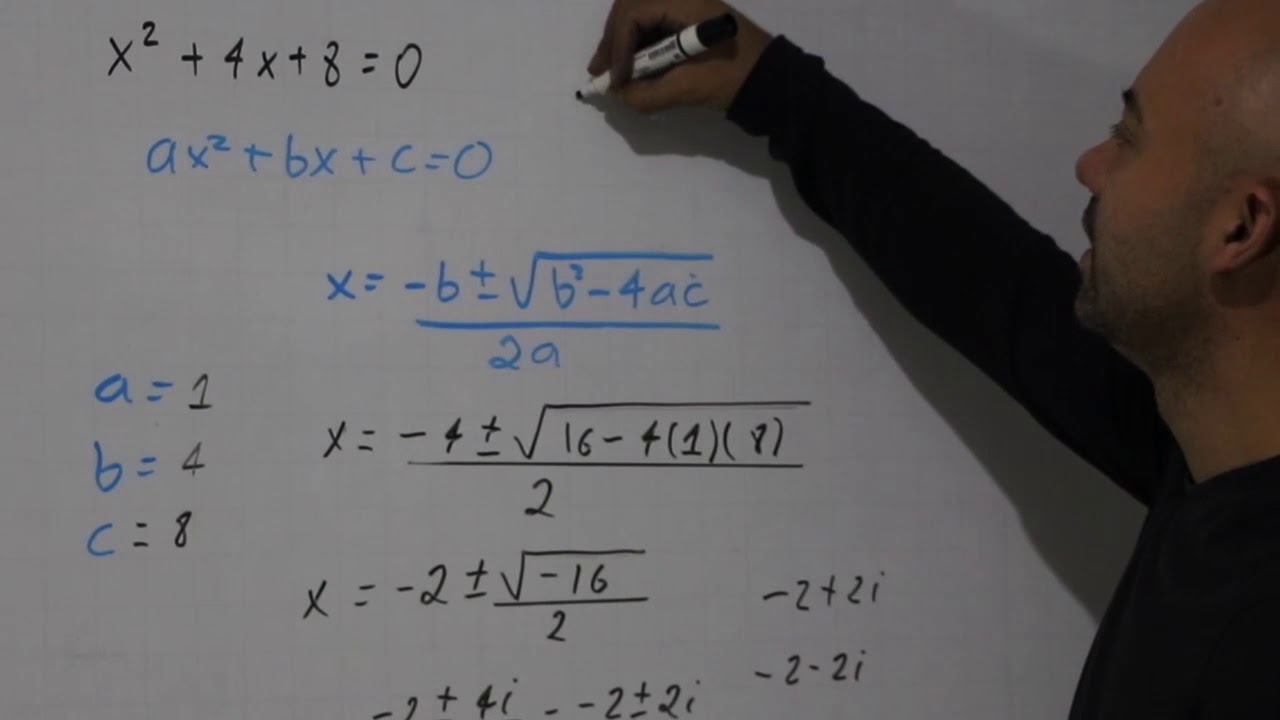 x² + 4x + 8 = 0
ax² + bx + c = 0
x = (-b ± √(b² - 4ac)) / 2a
a = 1
b = 4
c = 8
x = (-4 ± √(16 - 4(1)(8))) / 2
x = -2 ± √(-16) / 2
-2 + 2i
-2 - 2i
-2 ± 4i - -2 ± 2i